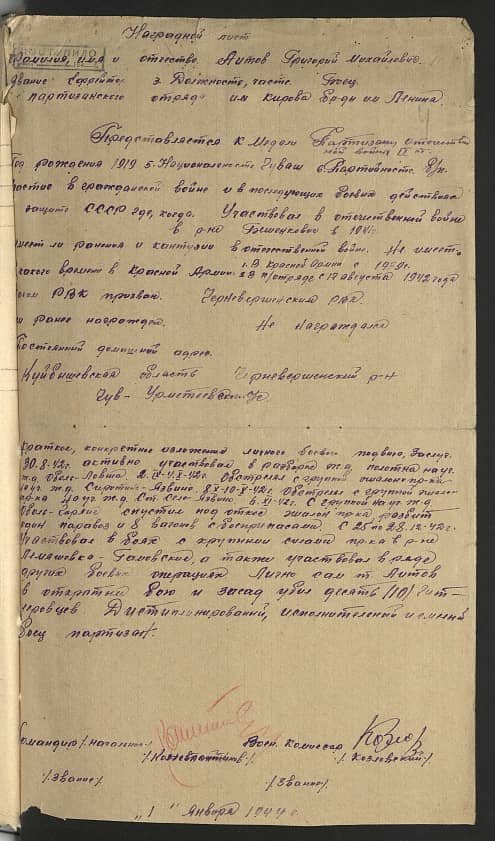 Наградной лист
ПОСТУПИЛО
Фамилия, имя и отчество. Аитов Григорий Михайлович.
Звание Ефрейтор 3. Должность, часть. Боец
партизанского отряда им Кирова Бр-ди им Ленина.
Представляется к Медали Партизану отечествен
ной войны II ст.
Год рождения 1919 5. Национальность Чуваш 6 Партийность б/п.
участие в гражданской войне и в последующих боевых действиях
защите СССР где, когда. Участвовал в отечественной войне
в р-не Бешенкович в 1941г
имеет ли ранения и кантузии в отечественной войне. Не имеет.
какого времени в Красной Армии. 1. В Красной Армии с 1939г.
2 В п/отряде с 17 августа 1942 года
каким РВК призван. Черневершенским рвк
ли ранее награжден. Не награждался
Постоянный домашний адрес.
Куйбышевская область Черневершенский р-н
Чув-Урметевский с/с
Краткое, конкретное изложения личного боевого подвига, заслуг.
30.8-42г. активно участвовал в разборке ж.д. полотна на уч.
ж.д. Оболь-Ловша. 2.IX-4.X-42г. Обстрелял с группой эшалоны пр-ка
на уч. ж.д. Сиротино-Язвино 8.X-10-X-42г. Обстрелял с группой эшалон
пр-ка на уч ж.д. Ст. Село-Язвино 6.XI-42г. С группой на уч ж.д
Оболь-Горяне спустил под откос эшалон пр-ка разбит
один паравоз и 8 вагонов с боеприпасами. С 25 по 28.12-42г.
Участвовал в боях с крупными силами пр-ка в р-не
а также участвовал в ряде
других боевых операциях Лично сам т. Аитов
в открытом бою и засад убил десять /10/ Гит-
леровцев. Дистиплинирований, исполнительной и смелий
боец партизан.
Командир /начальник/ Воен. Комиссар
/Константинов/ /Козловский/
/Звание/ /Звание/
"1" Января 1944г.